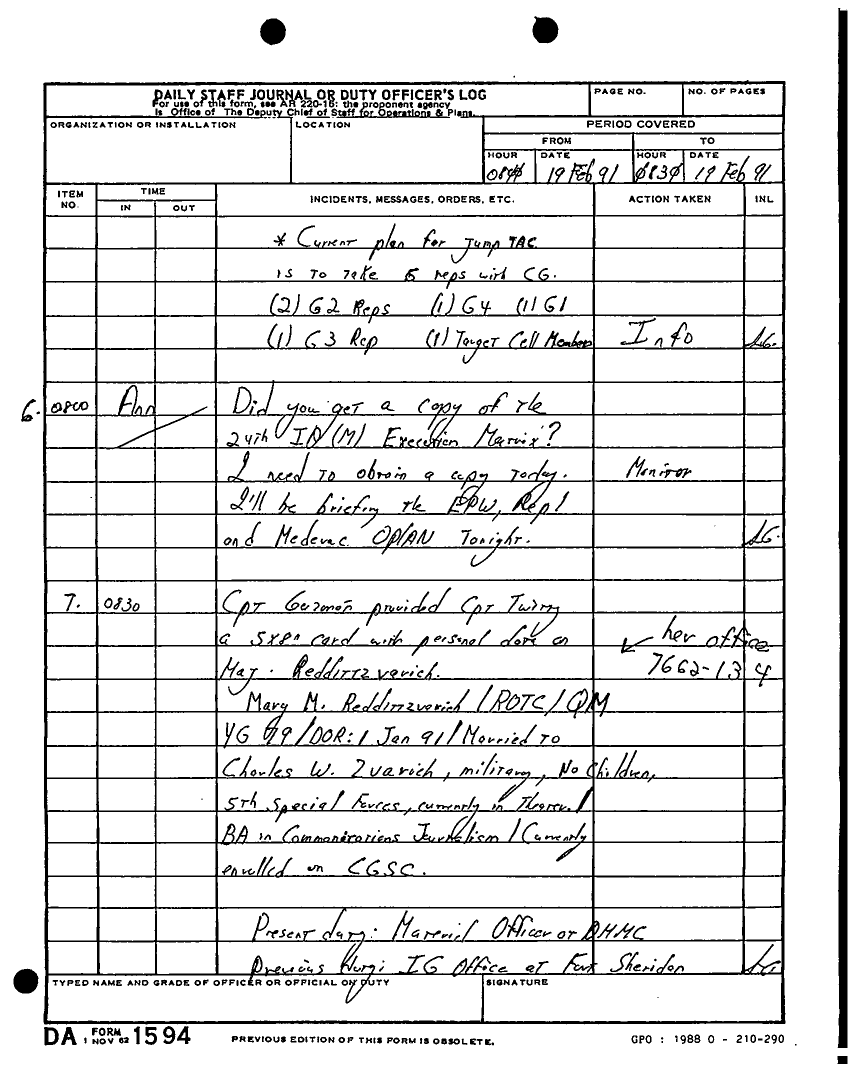 DAILY STAFF JOURNAL OR DUTY OFFICER'S LOG
For use of this form, see AR 220-15: the proponent agency
is Office of The Deputy Chief of Staff for Operations & Plans.
PAGE NO.
NO. OF PAGES
ORGANIZATION OR INSTALLATION
LOCATION
PERIOD COVERED
FROM
TO
HOUR
DATE
HOUR
DATE
19 Feb 91
0830
19 Feb 91
ITEM NO.
TIME
IN
OUT
INCIDENTS, MESSAGES, ORDERS, ETC.
ACTION TAKEN
INL
* Current plan for Jump TAC
is to take 6 reps with CG.
(2) G2 Reps (1) G4 (1) G1
(1) G3 Rep (1) Target Cell Member Info LG.
6. 0800 Ann Did you get a copy of the
24th ID (M) Execution Matrix?
I need to obtain a copy today. Monitor
I'll be briefing the EPW, Repl
and Medevac OPLAN Tonight. LG.
7. 0830 Cpt Guzman provided Cpt
a 5x8" card with personal data on her office
Maj. Reddittzvarich. 7662-134
Mary M. Reddittzvarich / ROTC / QM
YG 79 / DOR: 1 Jan 91 / Married to
Charles W. Zvarich, military, No Children,
5th Special Forces, currently in Theater. /
BA in Communications Journalism / Currently
enrolled in CGSC.
Present duty: Materiel Officer at
Previous IG Office at Fort Sheridan LG
TYPED NAME AND GRADE OF OFFICER OR OFFICIAL ON DUTY
SIGNATURE
DA FORM 1594
1 NOV 62
PREVIOUS EDITION OF THIS FORM IS OBSOLETE.
GPO : 1988 O - 210-290